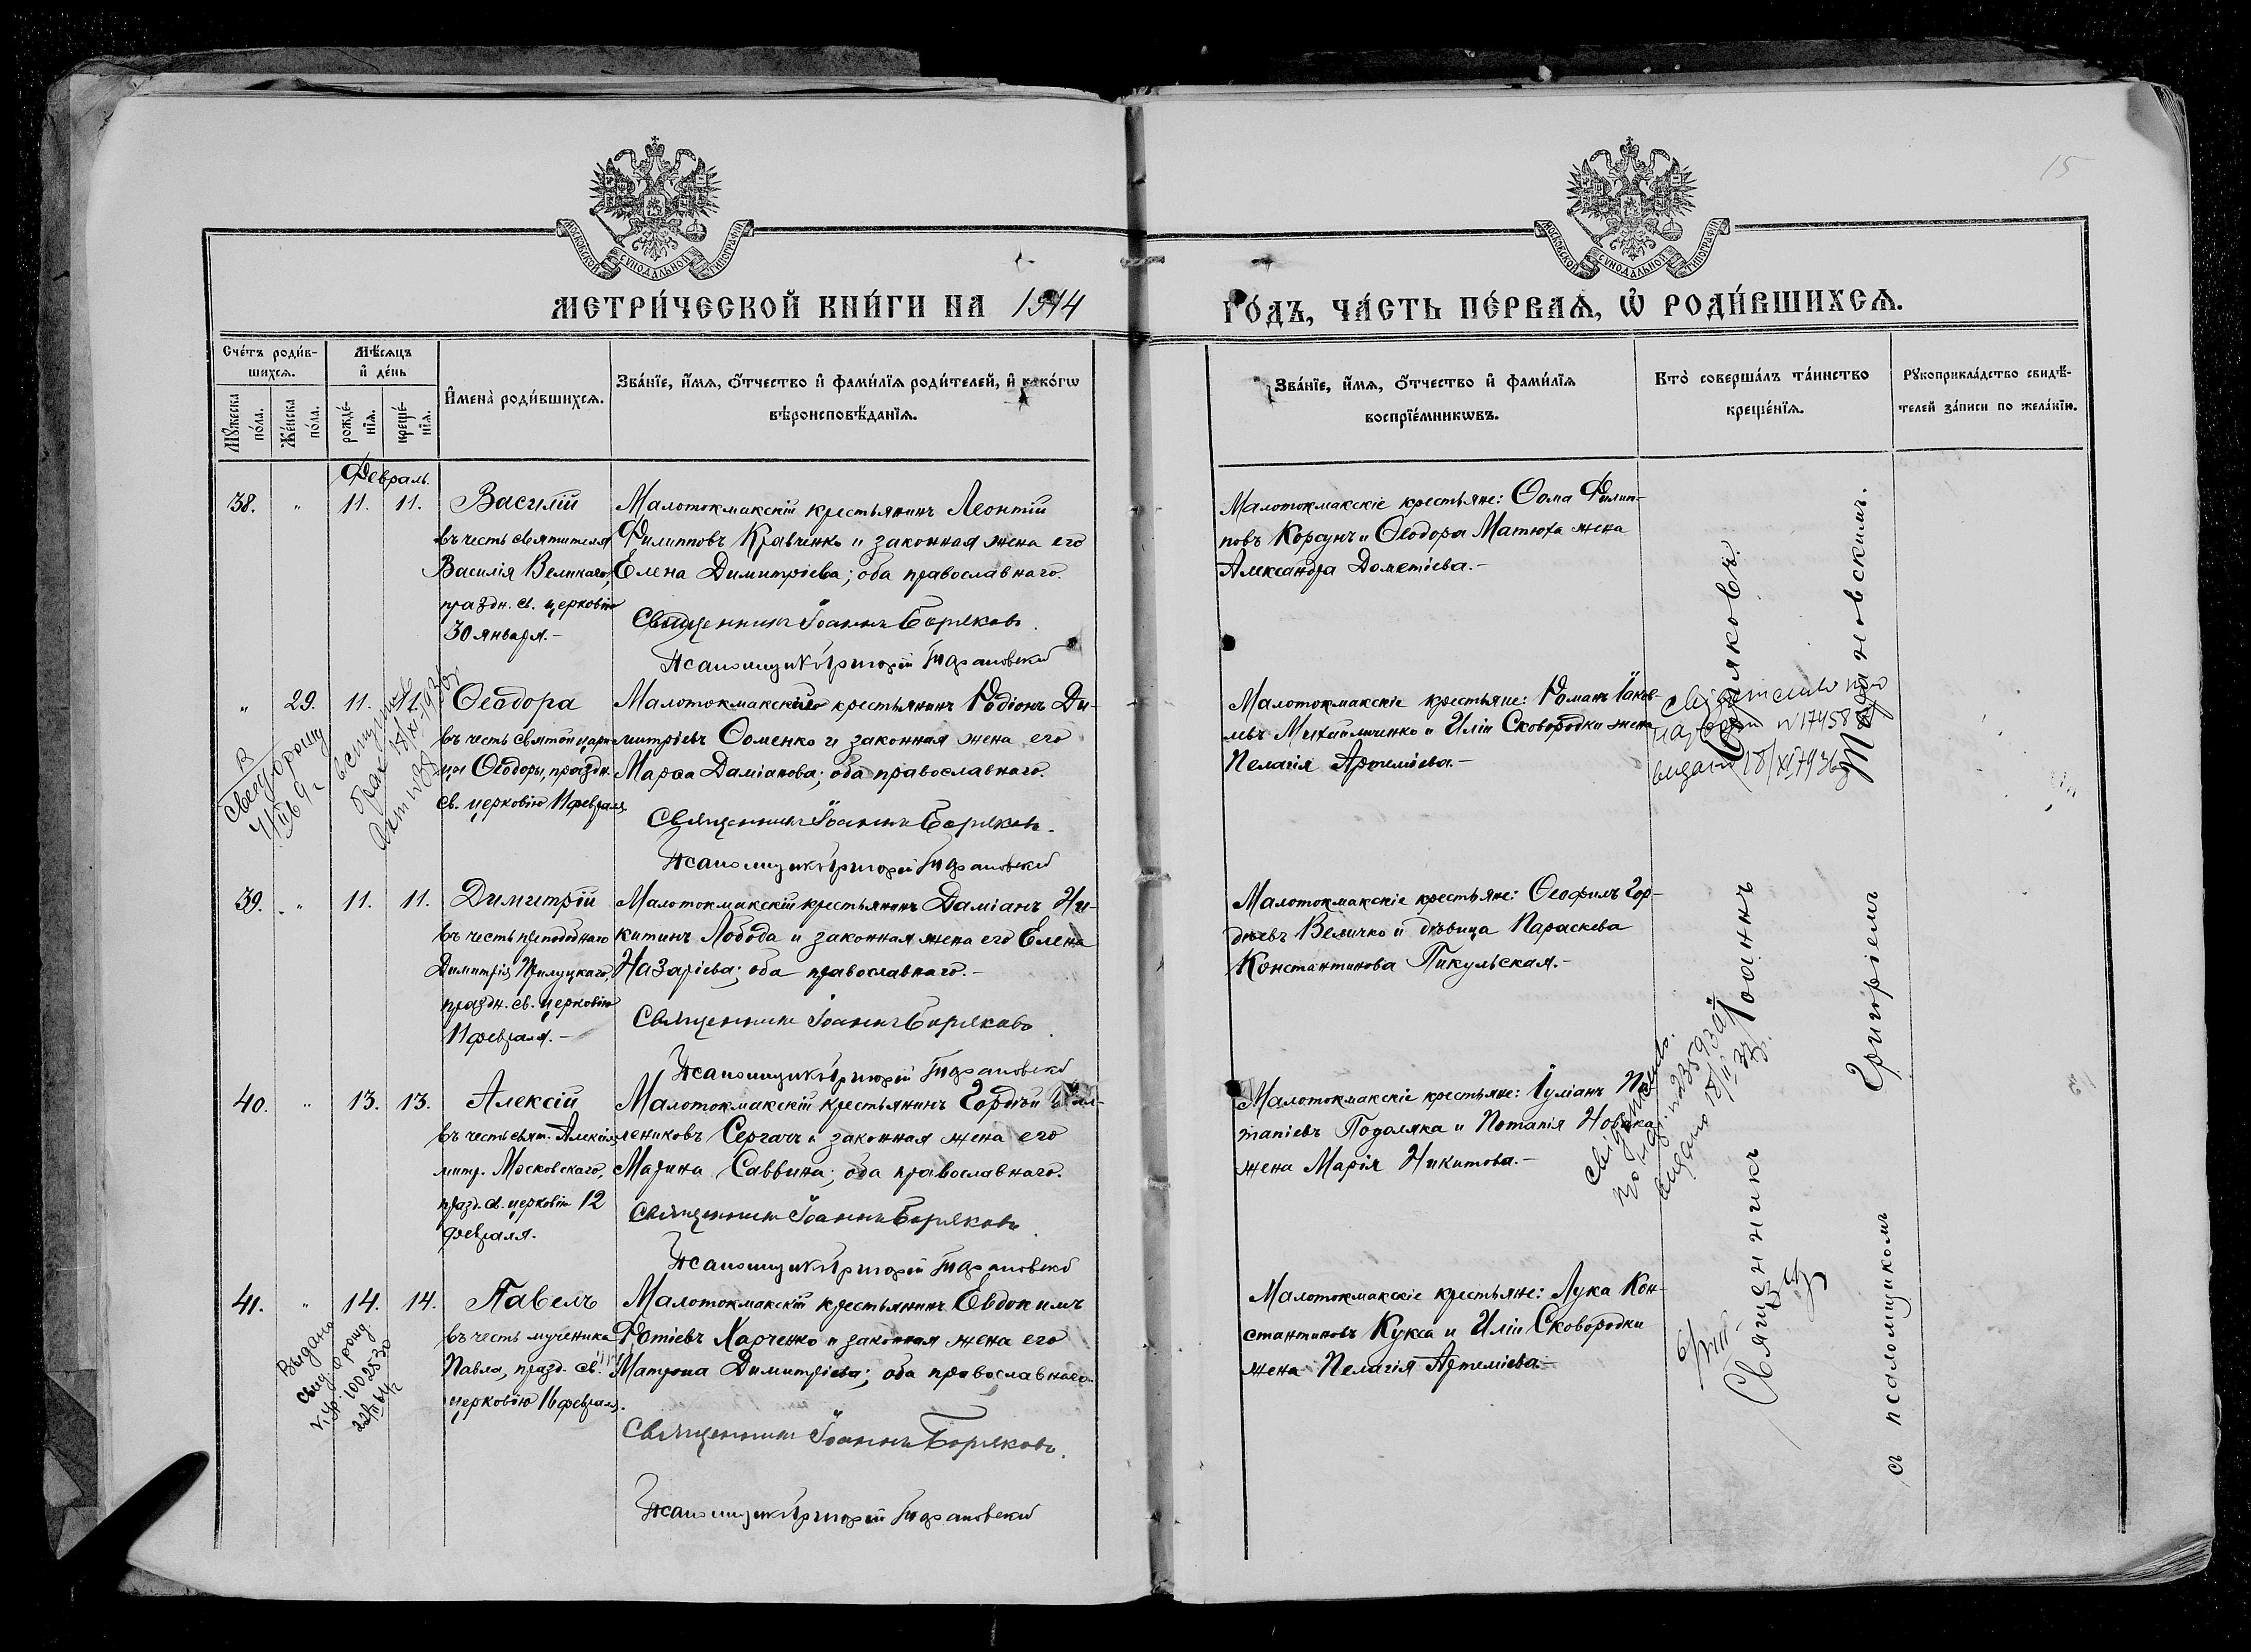 15
МОСКОВСКОЙ СѴНОДАЛЬНОЙ ТИПОГРАФІИ
МОСКОВСКОЙ СѴНОДАЛЬНОЙ ТИПОГРАФІИ
МЕТРИ́ЧЕСКОЙ КНИ́ГИ НА 1914
ГО́ДЪ, ЧА́СТЬ ПЕ́РВАѦ, Ѡ҆ РОДИ́ВШИХСѦ.
Сче́тъ роди́в-
шихсѧ.
Мѣ́сѧцъ
и҆ де́нь
Мꙋ́жеска
по́ла.
Же́нска
по́ла.
рожде́-
нїѧ.
креще́-
нїѧ.
И҆мена̀ роди́вшихсѧ.
Зва́нїе, и҆́мѧ, ѻ҆́тчество и҆ фами́лїѧ роди́телей, и҆ како́гѡ
вѣроисповѣ́данїѧ.
Зва́нїе, и҆́мѧ, ѻ҆́тчество и҆ фами́лїѧ
воспрїе́мникѡвъ.
Кто̀ соверша́лъ та́инство
креще́нїѧ.
Рꙋкоприкла́дство свидѣ́-
телей за́писи по жела́нїю.
Февраль.
38. " 11. 11. Василій
въ честь святителя
Василія Великаго,
праздн. св. церковію
30 января.-
Малотокмакскій крестьянинъ Леонтій
Филипповъ Кравченко и законная жена его
Елена Димитріева; оба православнаго.
Священникъ Іоаннъ Боряковъ.
Псаломщикъ Григорій Тарановскій
Малотокмакскіе крестьяне: Ѳома Филип-
повъ Корсунъ и Ѳеодора Матюха жена
Александра Дометіева.-
" 29. 11. 11. Ѳеодора
въ честь святой цари-
цы Ѳеодоры, праздн.
св. церковію 11 февраля.
Малотокмакскій крестьянинъ Родіонъ Ди-
митріевъ Ѳоменко и законная жена его
Марѳа Даміанова; оба православнаго.
Священникъ Іоаннъ Боряковъ.
Псаломщикъ Григорій Тарановскій
Малотокмакскіе крестьяне: Романъ Іаков-
левъ Михайличенко и Иліи Сковородки жена
Пелагія Артеміева.-
N 17458
39. " 11. 11. Димитрій
въ честь преподобнаго
Димитрія Прилуцкаго,
праздн. св. церковію
11 февраля.-
Малотокмакскій крестьянинъ Даміанъ Ни-
китинъ Лобода и законная жена его Елена
Назаріева; оба православнаго.-
Священникъ Іоаннъ Боряковъ.
Псаломщикъ Григорій Тарановскій
Малотокмакскіе крестьяне: Ѳеофилъ Гор-
дѣевъ Величко и дѣвица Параскева
Константинова Пикульская.-
40. " 13. 13. Алексій
въ честь свят. Алексія
митр. Московскаго,
празд. св. церковію 12
февраля.
Малотокмакскій крестьянинъ Гордѣй
лениковъ Сергачъ и законная жена его
Марина Саввина; оба православнаго.
Священникъ Іоаннъ Боряковъ.
Псаломщикъ Григорій Тарановскій
Малотокмакскіе крестьяне: Іуліанъ По-
тапіевъ Подоляка и Потапія Новака
жена Марія Никитова.-
41. " 14. 14. Павелъ
въ честь мученика
Павла, празд. св.
церковію 16 февраля.
Малотокмакскій крестьянинъ Евдокимъ
Фотіевъ Харченко и законная жена его
Матрона Димитріева; оба православнаго.
Священникъ Іоаннъ Боряковъ.
Псаломщикъ Григорій Тарановскій
Выдано
свид. о рожд.
Малотокмакскіе крестьяне: Лука Кон-
стантиновъ Кукса и Иліи Сковородки
жена Пелагія Артеміева.-
Священникъ Іоаннъ Боряковъ.
съ псаломщикомъ Григоріемъ Тарановскимъ.